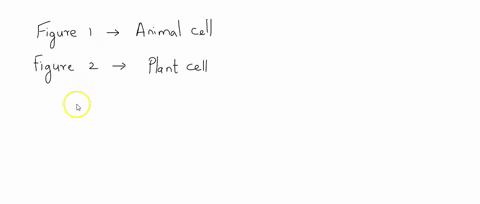 Figure 1 → Animal cell
Figure 2 → Plant cell